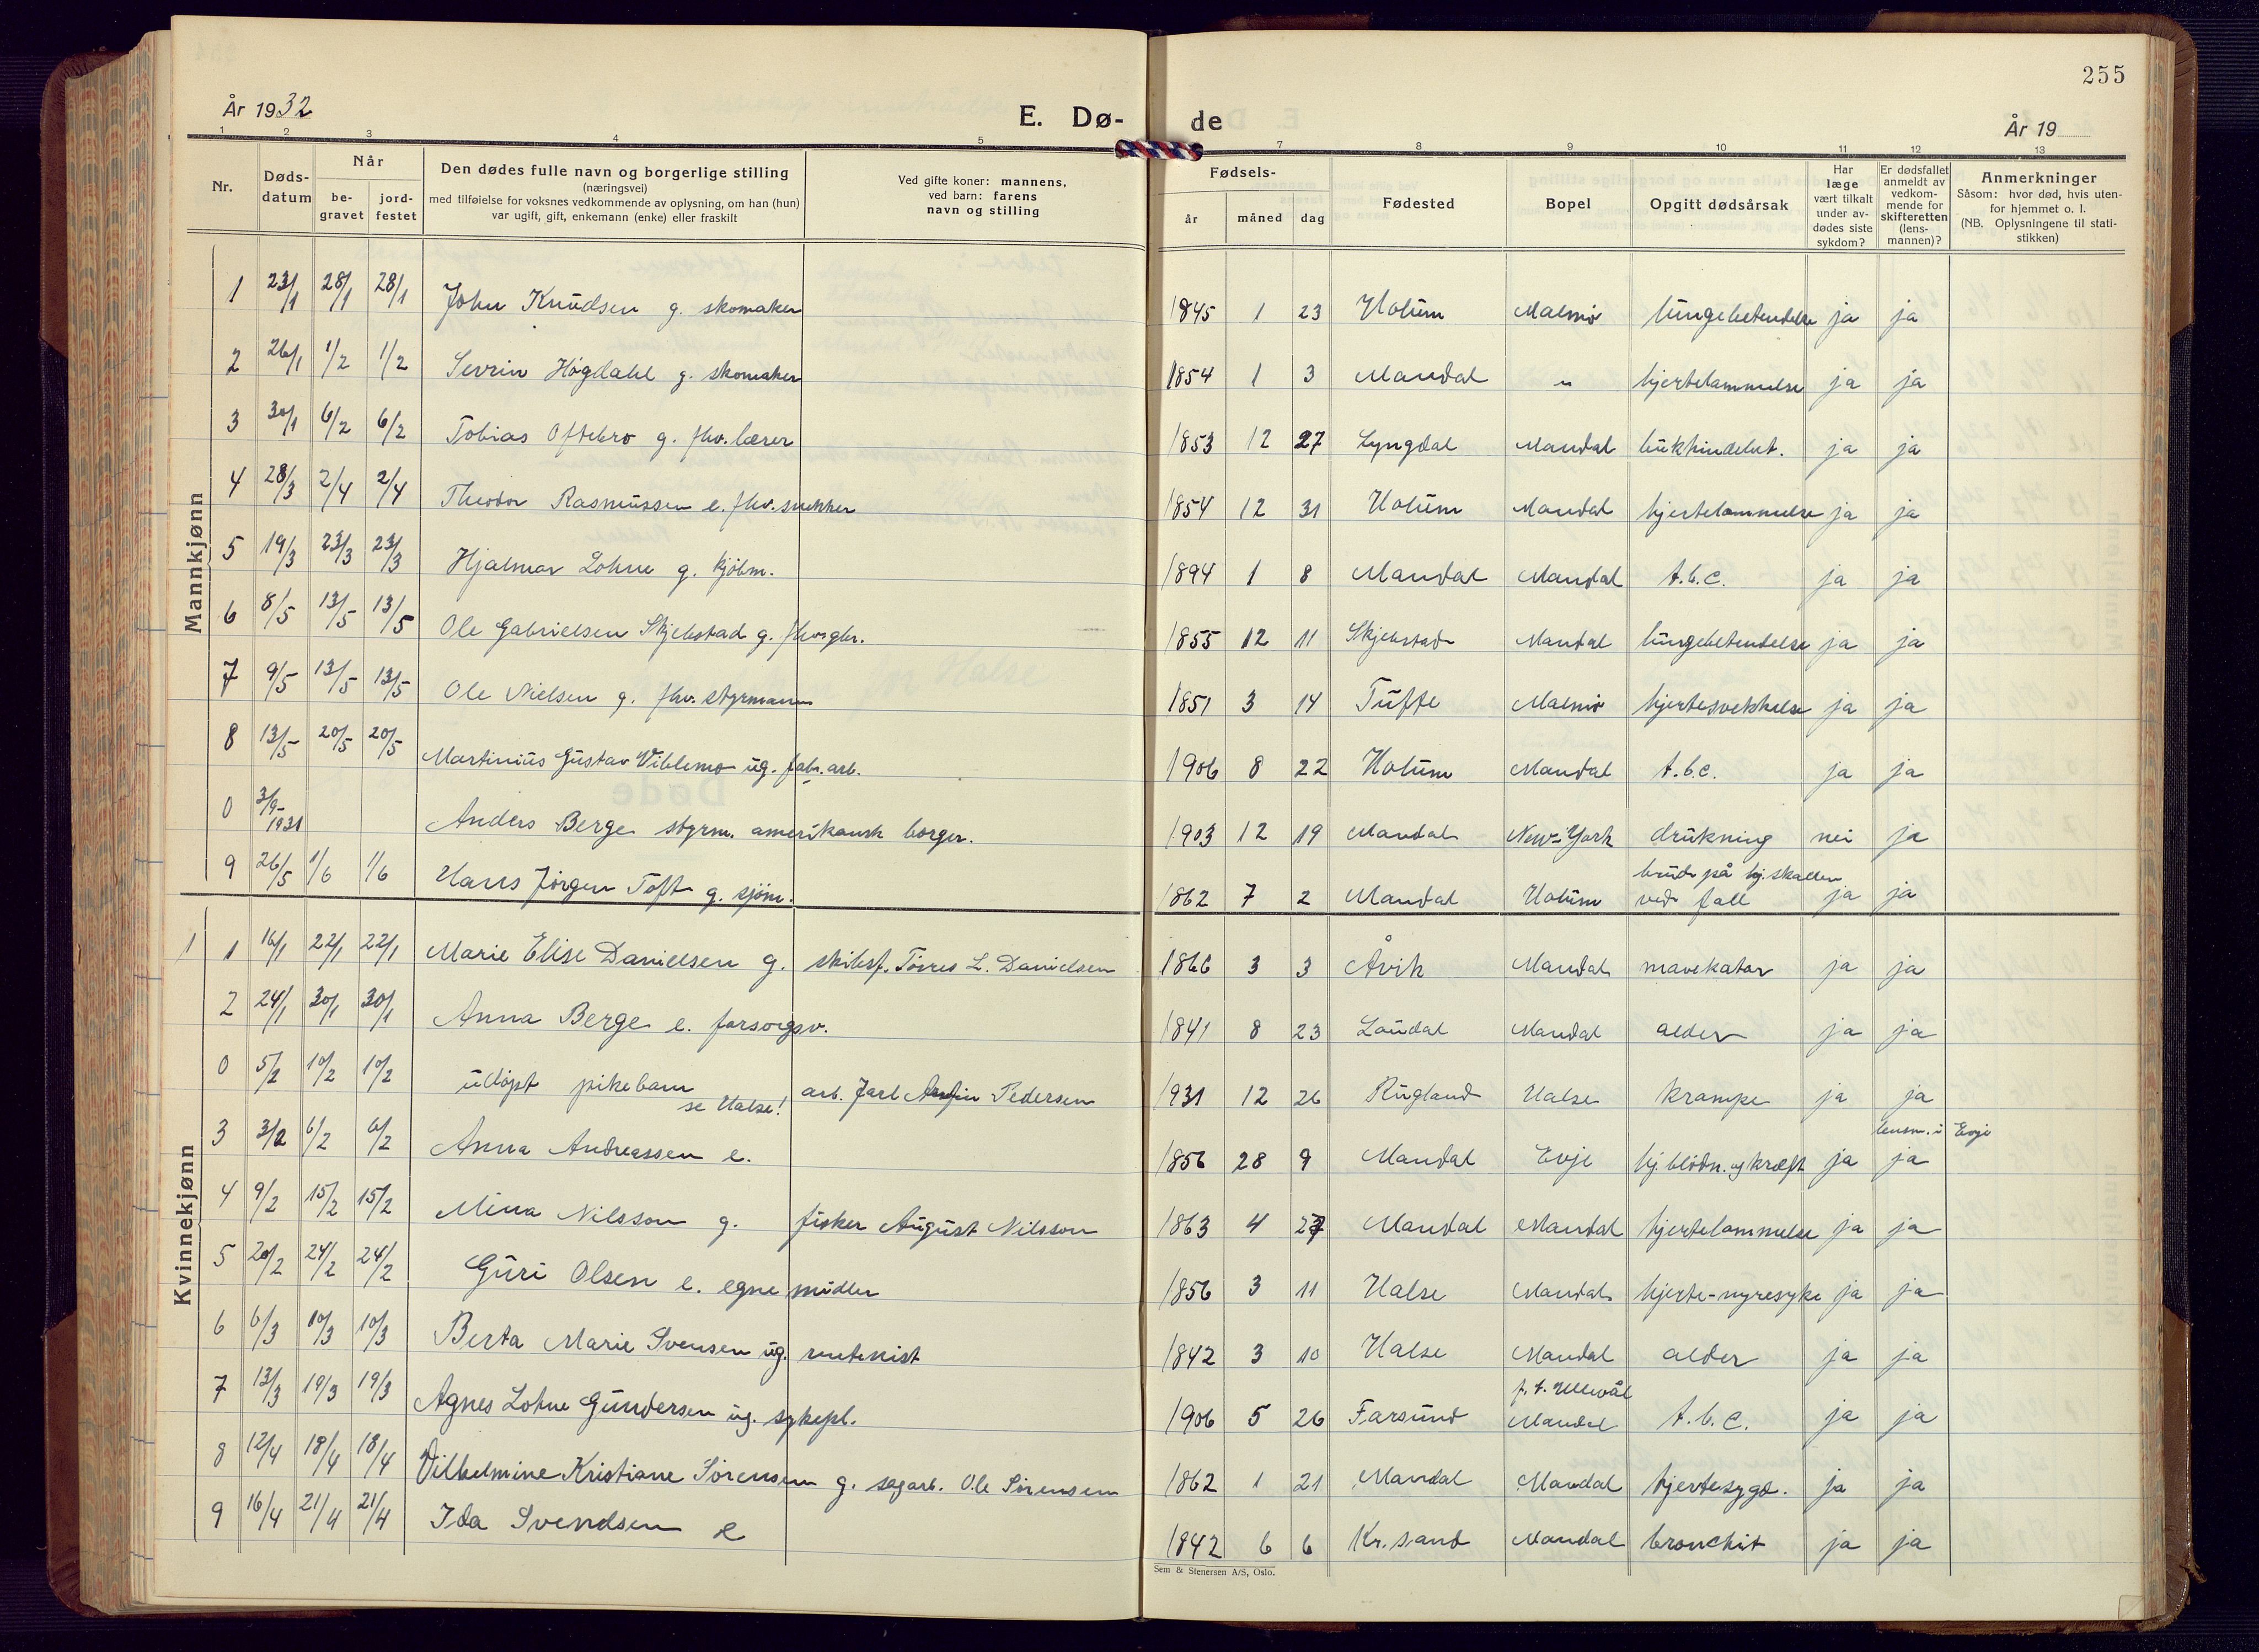 255
År 1932
E. Dø-
de
År 19
1 2 3 4 5 7 8 9 10 11 12 13
Nr.
Døds-
datum
Når
be-
gravet
jord-
festet
Den dødes fulle navn og borgerlige stilling
(næringsvei)
med tilføielse for voksnes vedkommende av oplysning, om han (hun)
var ugift, gift, enkemann (enke) eller fraskilt
Ved gifte koner: mannens,
ved barn: farens
navn og stilling
Fødsels-
år måned dag
Fødested
Bopel
Opgitt dødsårsak
Har
læge
vært tilkalt
under av-
dødes siste
sykdom?
Er dødsfallet
anmeldt av
vedkom-
mende for
skifteretten
(lens-
mannen)?
Anmerkninger
Såsom: hvor død, hvis uten-
for hjemmet o. l.
(NB. Oplysningene til stati-
stikken)
Mannkjønn
1 23/1 28/1 28/1 John Knudsen g. skomaker 1845 1 23 Holum Malmø lungebetendelse ja ja
2 26/1 1/2 1/2 Sevrin Høgdahl g. skomaker 1854 1 3 Mandal " hjertelammelse ja ja
3 30/1 6/2 6/2 Tobias Oftebro g. fhv. lærer 1853 12 27 Lyngdal Mandal bukhindebet. ja ja
4 28/3 2/4 2/4 Theodor Rasmussen e. fhv. snekker 1854 12 31 Holum Mandal hjertelammelse ja ja
5 19/3 23/3 23/3 Hjalmar Lohne g. kjøbm. 1894 1 8 Mandal Mandal t.b.c. ja ja
6 8/5 13/5 13/5 Ole Gabrielsen Skjebstad g. fhv. gbr. 1855 12 11 Skjebstad Mandal lungebetendelse ja ja
7 9/5 13/5 13/5 Ole Nielsen g. fhv. styrmann 1851 3 14 Tufte Malmø hjertesvekkelse ja ja
8 13/5 20/5 20/5 Martinius Gustav Viblemo ug. fabr. arb. 1906 8 22 Holum Mandal t.b.c. ja ja
0 3/9-
1931 Anders Berge styrm. amerikansk borger. 1903 12 19 Mandal New-York drukning nei ja
9 26/5 1/6 1/6 Hans Jørgen Toft g. sjøm. 1862 7 2 Mandal Holum brud på hj. skallen
ved fall ja ja
Kvinnekjønn
1 1 16/1 22/1 22/1 Marie Elise Danielsen g. skibsf. Tørres L. Danielsen 1866 3 3 Åvik Mandal mavekatar ja ja
2 24/1 30/1 30/1 Anna Berge e. forsorgsv. 1841 8 23 Laudal Mandal alder ja ja
0 5/2 10/2 10/2 udøpt pikebarn
se Halse! arb. Jarl Pedersen 1931 12 26 Rugland Halse krampe ja ja
3 3/2 6/2 6/2 Anna Andreassen e. 1856 28 9 Mandal Evje hj. blødn. og kræft ja ja
lensm. i Evje
4 9/2 15/2 15/2 Mina Nilsson g. fisker August Nilsson 1863 4 27 Mandal Mandal hjertelammelse ja ja
5 20/2 24/2 24/2 Guri Olsen e. egne midler 1856 3 11 Halse Mandal hjerte-nyresyke ja ja
6 6/3 10/3 10/3 Berta Marie Svensen ug. rentenist 1842 3 10 Halse Mandal alder ja ja
7 13/3 19/3 19/3 Agnes Lohne Gundersen ug. sykepl. 1906 5 26 Farsund f. t. Ullevål
Mandal t.b.c. ja ja
8 12/4 18/4 18/4 Vilhelmine Kristiane Sørensen g. sagarb. Ole Sørensen 1862 1 21 Mandal Mandal hjertesygd. ja ja
9 16/4 21/4 21/4 Ida Svendsen e 1842 6 6 Kr.sand Mandal bronchit ja ja
Sem & Stenersen A/S, Oslo.